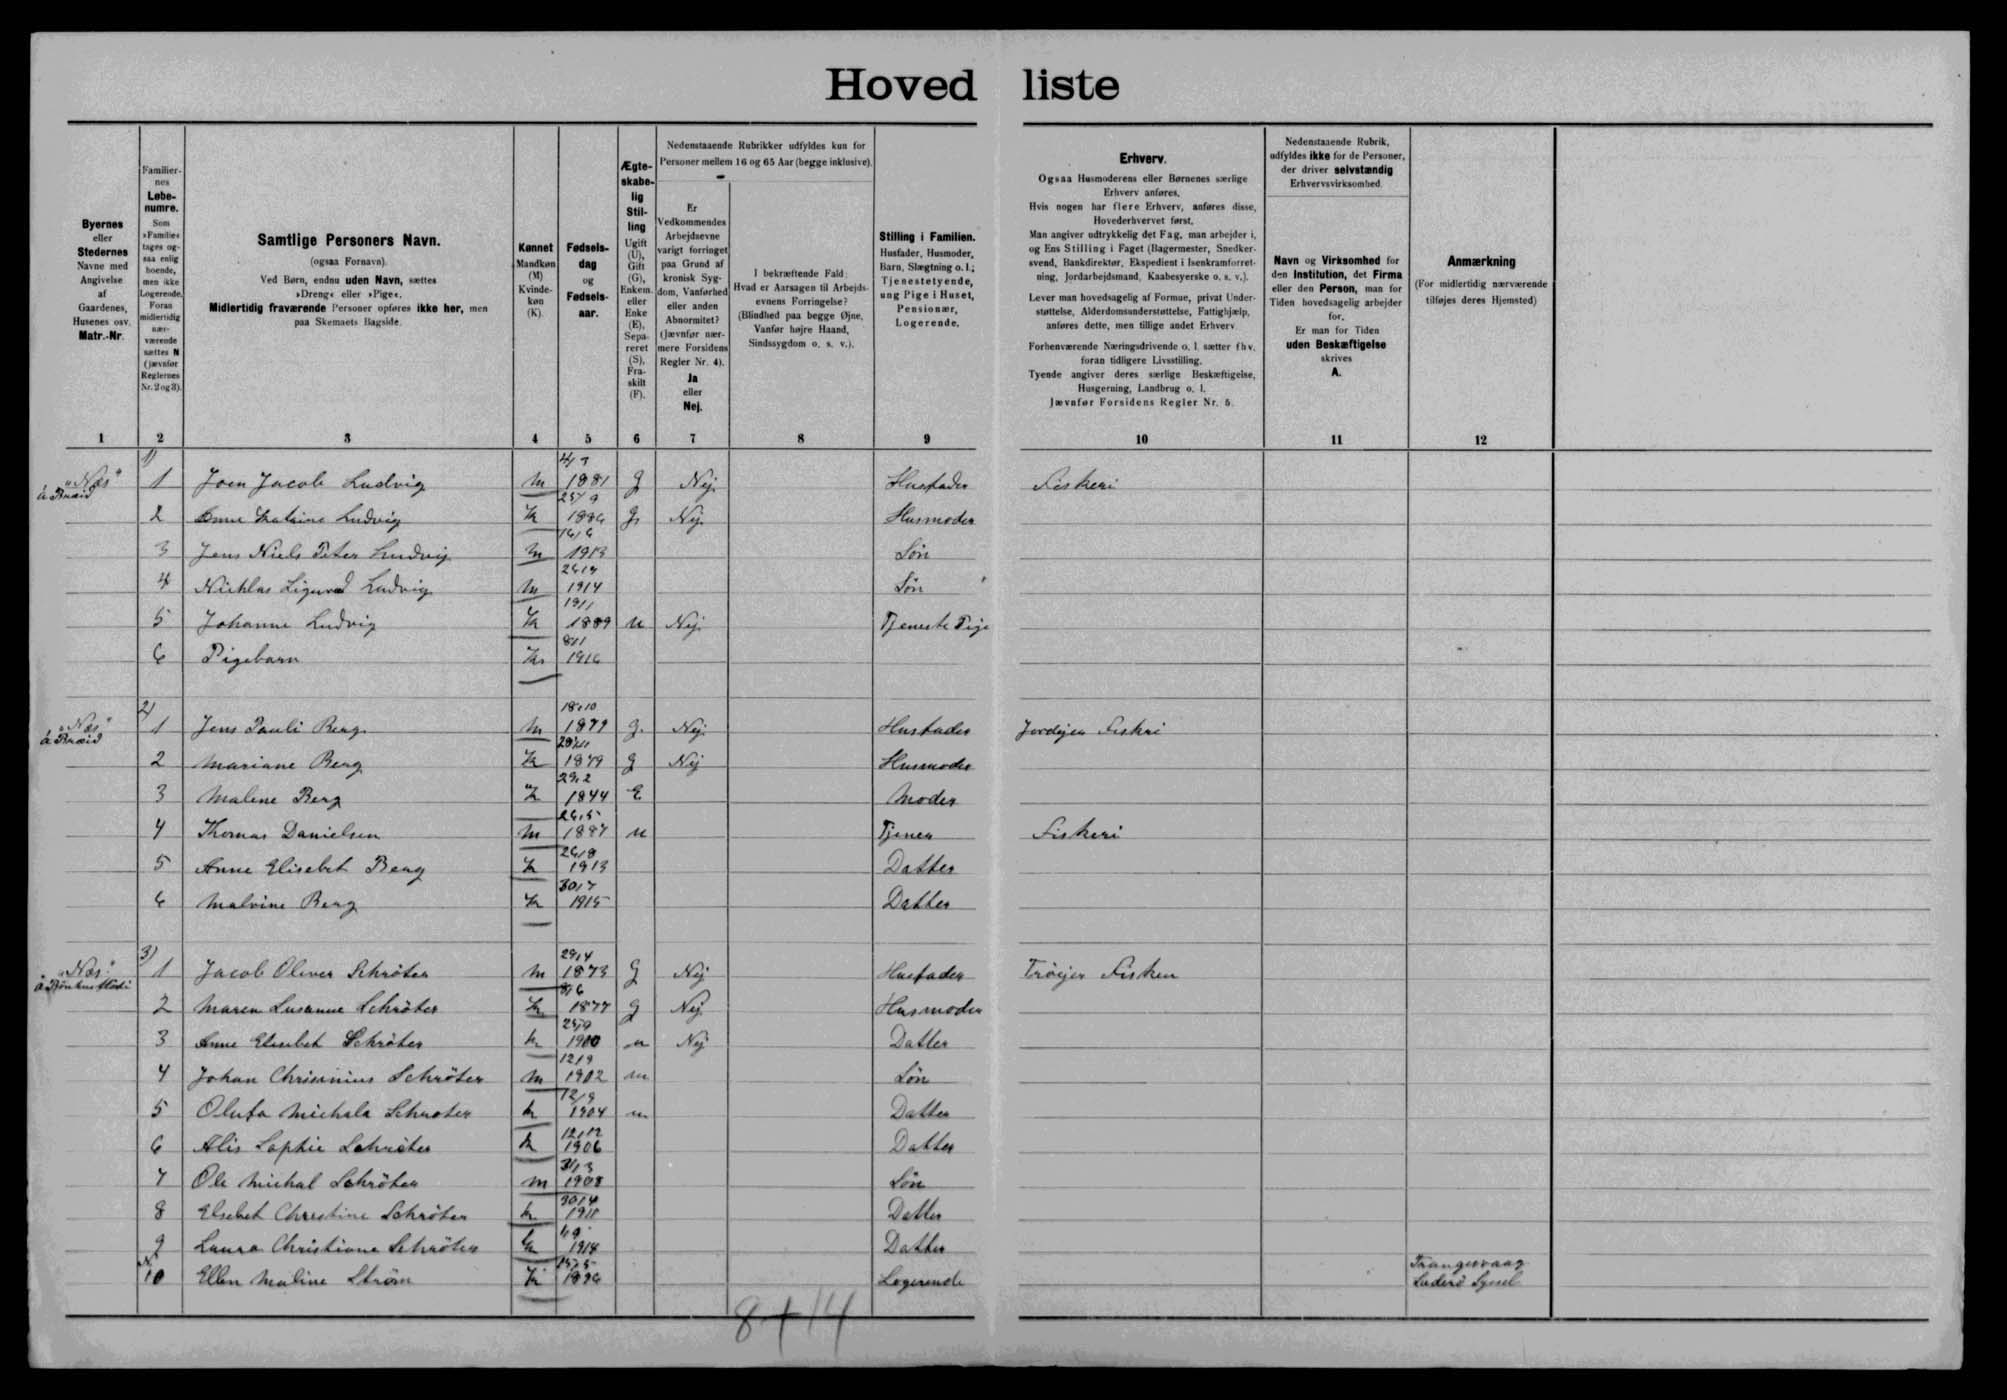 Hoved liste
Byernes
eller
Stedernes
Navne med
Angivelse
af
Gaardenes,
Husenes osv.
Matr.-Nr.
Familier-
nes
Løbe-
numre.
Som
»Familie«
tages og-
saa enlig
boende,
men ikke
Logerende.
Foran
midlertidig
nær-
værende
sættes N
(jævnfør
Reglernes
Nr. 2 og 3).
Samtlige Personers Navn.
(ogsaa Fornavn).
Ved Børn, endnu uden Navn, sættes
»Dreng« eller »Pige«.
Midlertidig fraværende Personer opføres ikke her, men
paa Skemaets Bagside.
Kønnet
Mandkøn
(M)
Kvinde-
køn
(K).
Fødsels-
dag
og
Fødsels-
aar.
Ægte-
skabe-
lig
Stil-
ling
Ugift
(U),
Gift
(G),
Enkem.
eller
Enke
(E),
Sepa-
reret
(S),
Fra-
skilt
(F).
Nedenstaaende Rubrikker udfyldes kun for
Personer mellem 16 og 65 Aar (begge inklusive).
Er
Vedkommendes
Arbejdsevne
varigt forringet
paa Grund af
kronisk Syg-
dom, Vanførhed
eller anden
Abnormitet?
(Jævnfør nær-
mere Forsidens
Regler Nr. 4).
Ja
eller
Nej.
I bekræftende Fald:
Hvad er Aarsagen til Arbejds-
evnens Forringelse?
(Blindhed paa begge Øjne,
Vanfør højre Haand,
Sindssygdom o. s. v.).
Stilling i Familien.
Husfader, Husmoder,
Barn, Slægtning o. l.;
Tjenestetyende,
ung Pige i Huset,
Pensionær,
Logerende.
Erhverv.
Ogsaa Husmoderens eller Børnenes særlige
Erhverv anføres.
Hvis nogen har flere Erhverv, anføres disse,
Hovederhvervet først.
Man angiver udtrykkelig det Fag, man arbejder i,
og Ens Stilling i Faget (Bagermester, Snedker-
svend, Bankdirektør, Ekspedient i Isenkramforret-
ning, Jordarbejdsmand, Kaabesyerske o. s. v.).
Lever man hovedsagelig af Formue, privat Under-
støttelse, Alderdomsunderstøttelse, Fattighjælp,
anføres dette, men tillige andet Erhverv
Forhenværende Næringsdrivende o. l. sætter fhv.
foran tidligere Livsstilling.
Tyende angiver deres særlige Beskæftigelse,
Husgerning, Landbrug o. l.
Jævnfør Forsidens Regler Nr. 5.
Nedenstaaende Rubrik,
udfyldes ikke for de Personer,
der driver selvstændig
Erhvervsvirksomhed.
Navn og Virksomhed for
den Institution, det Firma
eller den Person, man for
Tiden hovedsagelig arbejder
for.
Er man for Tiden
uden Beskæftigelse
skrives
A.
Anmærkning
(For midlertidig nærværende
tilføjes deres Hjemsted)
1 2 3 4 5 6 7 8 9 10 11 12
1)
"Næs" 1 Joen Jacob Ludvig M 1881 G Nej. Husfader Fiskeri
á Bræid
2 Anne Katrine Ludvig K 25/9 1886 G. Nej. Husmoder
3 Jens Niels Peter Ludvig M 16/6 1913 Søn
4 Nicklas Ligurd Ludvig M 1914 Søn
5 Johanne Ludvig K 19/1 1889 U Nej. Tjeneste Pige
6 Pigebarn K 8/1 1916
2)
"Næs" 1 Jens Pauli Berg M 18/10 1879 G. Nej. Husfader Jordejer Fiskri
á Bræid
2 Mariane Berg K 1879 G Nej Husmoder
3 Malene Berg K 29/2 1844 E Moder
4 Thomas Danielsen M 26/5 1887 U Tjener Fiskeri
5 Anne Elisebet Berg K 26/8 1913 Datter
6 Malvine Berg K 30/7 1915 Datter
3)
"Næs" 1 Jacob Oliver Schröter M 29/4 1873 G Nej Husfader Trøejer Fisker
2 Maren Susanne Schröter K 8/6 1877 G Nej Husmoder
3 Anne Elisebet Schröter K 25/9 1900 U Nej Datter
4 Johan Chrisenius Schröter M 12/9 1902 Søn
5 Olufa Michala Schröter K 12/9 1904 Datter
6 Alis Sophie Schröter K 12/12 1906 Datter
7 Ole Michal Schröter M 31/3 1908 Søn
8 Elsebet Christine Schröter K 30/4 1911 Datter
9 Laura Christiane Schröter K 1914 Datter
N.
10 Ellen Maline Strøm K 1896 Logerende Trangisvaag
Suderø Syssel
8+14